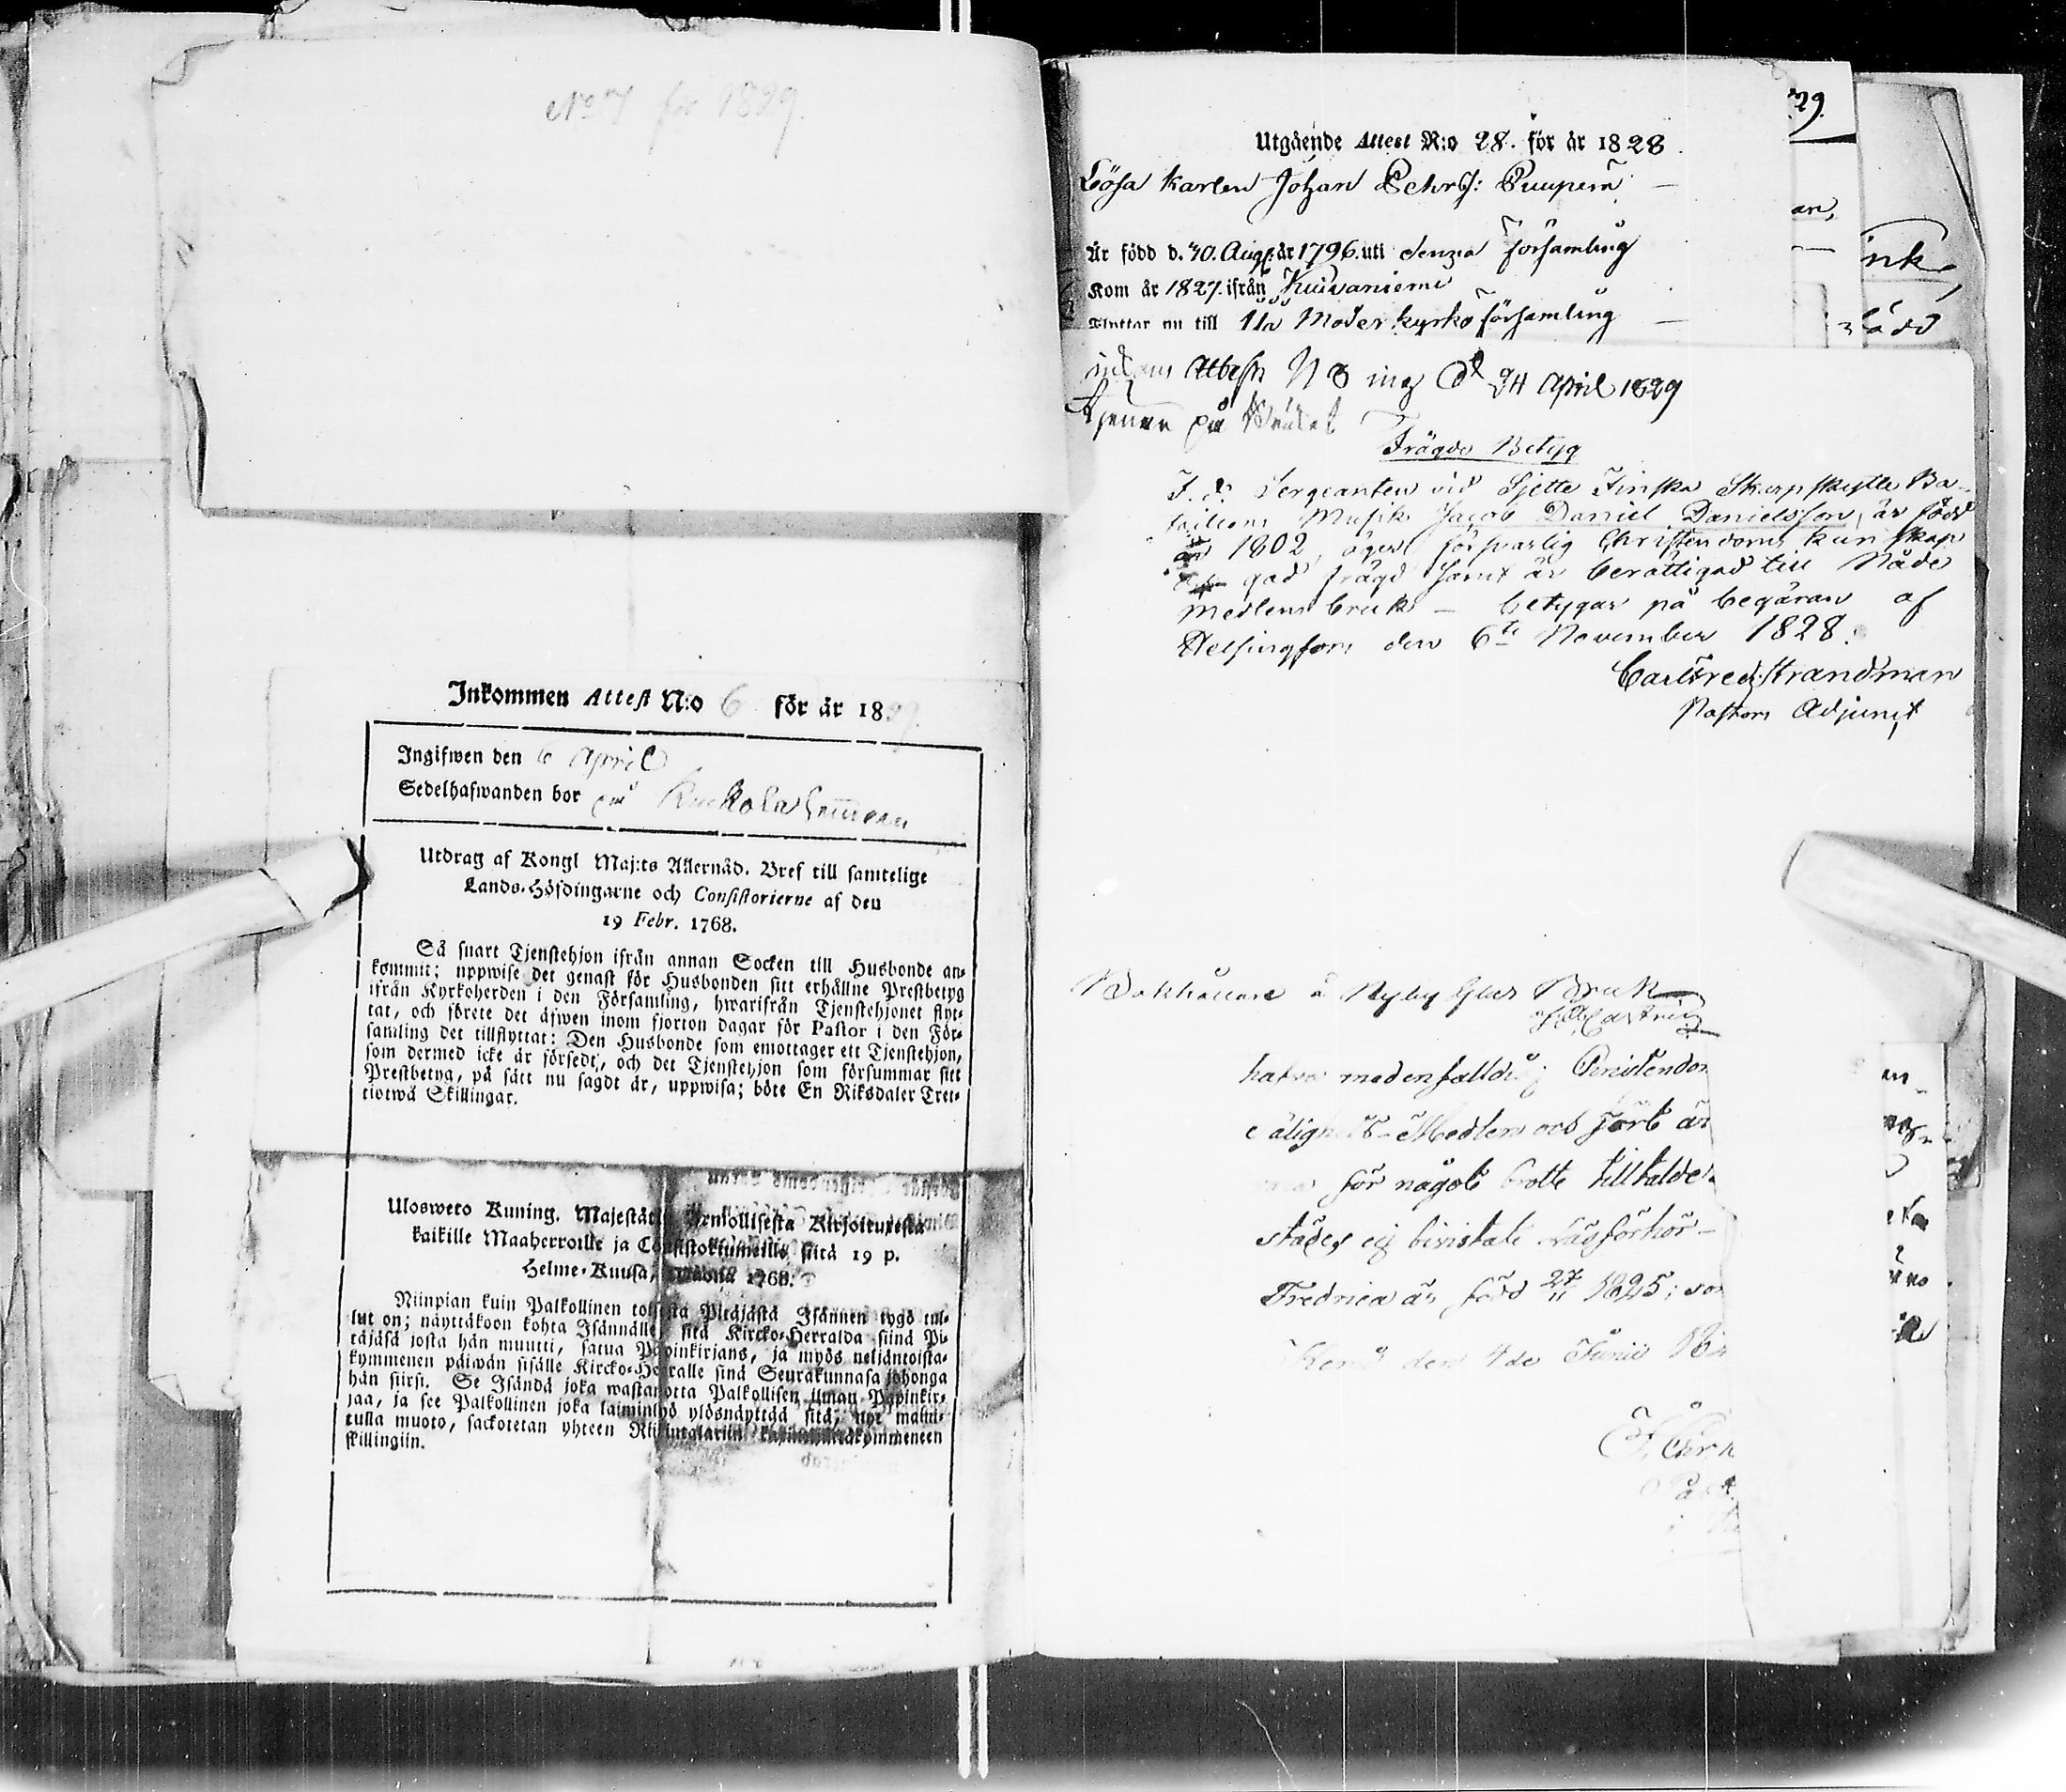 No 7 för 1829.
Inkommen Attest N:o 6 för år 1829.
Ingifwen den 6 April
Sedelhafwanden bor på Kuckola hemman
Utdrag af Kongl Maj:ts Allernåd. Bref till samtelige
Lands-Höfdingarne och Consistorierne af den
19 Febr. 1768.
Så snart Tjenstehjon ifrån annan Socken till Husbonde an-
kommit; uppwise det genast för Husbonden sitt erhållne Prestbetyg
ifrån Kyrkoherden i den Församling, hwarifrån Tjenstehjonet flyt-
tat, och förete det äfwen inom fjorton dagar för Pastor i den För-
samling det tillflyttat: Den Husbonde som emottager ett Tjenstehjon,
som dermed icke är försedt, och det Tjenstehjon som försummar sitt
Prestbetyg, på sätt nu sagdt är, uppwisa; böte En Riksdaler Tret-
tiotwå Skillingar.
Ulosweto Kuning. Majestätin Armollisesta Kirjoituxesta
kaikille Maaherroille ja Consistoriumeille, siitä 19 p.
Helme-Kuusa, wuonna 1768.
Niinpian kuin Palkollinen toisesta Pitäjästä Isännen tygö tul-
lut on; näyttäkoon kohta Isännälle, sitä Kircko-Herralda siinä Pi-
täjäsä josta hän muutti, saatua Papinkirjans, ja myös neljäntoista-
kymmenen päiwän sisälle Kircko-Herralle siinä Seurakunnasa johonga
hän siirsi. Se Isändä joka wastanotta Palkollisen ilman Papinkir-
jaa, ja see Palkollinen joka laiminlyö ylösnäyttää sitä, nyt mainit-
tulla muoto, sackotetan yhteen Riikintalariin kahteenneljäkymmeneen
skillingiin.
Utgående Attest N:o 28. för år 1828.
Lösa karlen Johan Pehrs: Puuperä
Är född d. 30. Aug: år 1796. uti denna församling
Kom år 1827. ifrån Kuivaniemi
Flyttar nu till Ijå Moderkyrko församling
Attest N 8 ing d 24 April 1829
på
Frägde Betyg
F. d. Sergeanten vid Sjette Finska Skarpskytte Ba-
taillons Musik Jacob Daniel Danielsson, är född
år 1802, äger försvarlig Christendoms kunskap
god frägd samt är berättigad till Nåde
medlens bruk — betygar på begäran af
Helsingfors den 6te November 1828.
Carl Fred. Strandman
Pastors Adjunct
Bokhållare å Nyby Glas Bruk
Castrén
hafva medenfalldig Christendom
Medlen och fört är
för något brott tilltalde
städes ej bivistat Läsförhör
Fredrica är född 27/11 1825; som
Kemi den 4de Junii 18
Past
29.